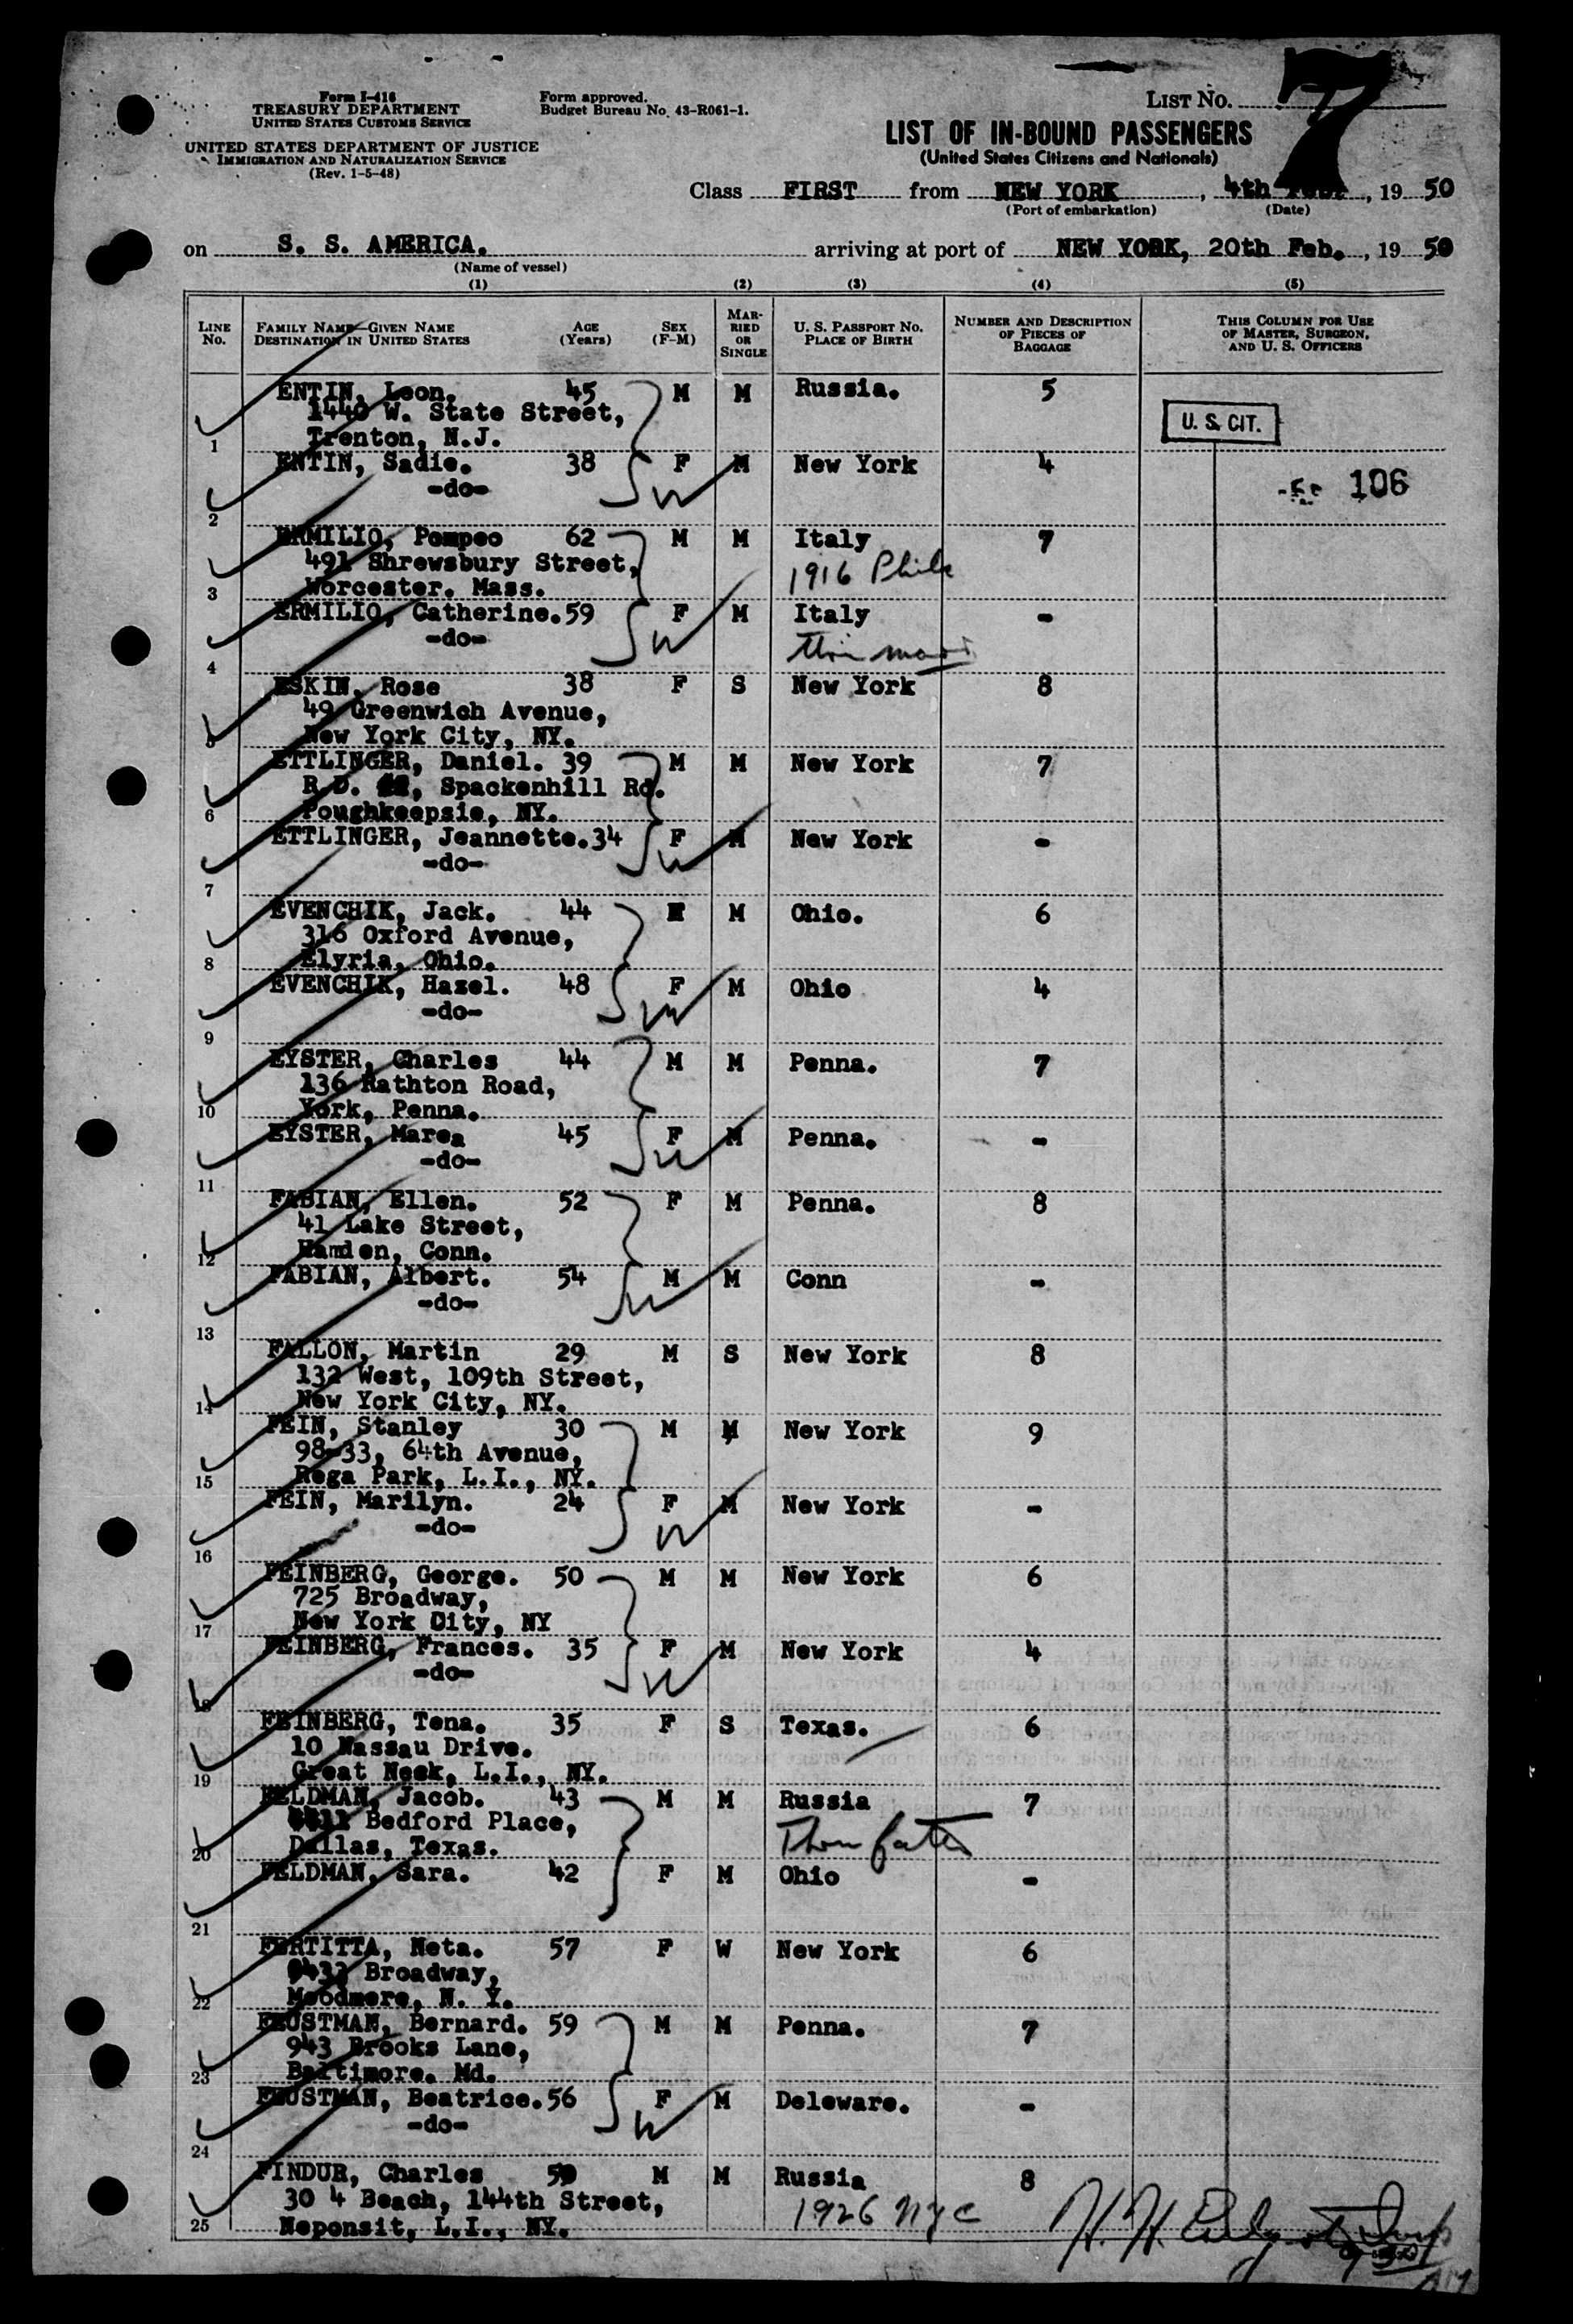 Form I-416
TREASURY DEPARTMENT
UNITED STATES CUSTOMS SERVICE
UNITED STATES DEPARTMENT OF JUSTICE
IMMIGRATION AND NATURALIZATION SERVICE
(Rev. 1-5-48)
Form approved.
Budget Bureau No. 43-R061-1.
LIST NO. 7
LIST OF IN-BOUND PASSENGERS
(United States Citizens and Nationals)
Class FIRST from NEW YORK, 4th , 19 50
(Port of embarkation) (Date)
on S. S. AMERICA. arriving at port of NEW YORK, 20th Feb., 19 50
(Name of vessel)
(1) (2) (3) (4) (5)
LINE No. FAMILY NAME—GIVEN NAME DESTINATION IN UNITED STATES AGE (Years) SEX (F-M) MARRIED OR SINGLE U. S. PASSPORT NO. PLACE OF BIRTH NUMBER AND DESCRIPTION OF PIECES OF BAGGAGE THIS COLUMN FOR USE OF MASTER, SURGEON, AND U. S. OFFICERS
ENTIN, Leon. 45 M M Russia. 5
1440 W. State Street,
U. S. CIT.
1 Trenton, N.J.
ENTIN, Sadie. 38 F M New York 4
-do- W 106
2
ERMILIO, Pompeo 62 M M Italy 7
491 Shrewsbury Street, 1916 Phila
3 Worcester. Mass.
ERMILIO, Catherine. 59 F M Italy -
-do- W
4
ESKIN, Rose 38 F S New York 8
49 Greenwich Avenue,
5 New York City, NY.
ETTLINGER, Daniel. 39 M M New York 7
R.D. , Spackenhill Rd.
6 Poughkeepsie, NY.
ETTLINGER, Jeannette. 34 F M New York -
-do- W
7
EVENCHIK, Jack. 44 M M Ohio. 6
316 Oxford Avenue,
8 Elyria, Ohio.
EVENCHIK, Hazel. 48 F M Ohio 4
-do- W
9
EYSTER, Charles 44 M M Penna. 7
136 Rathton Road,
10 York, Penna.
EYSTER, Marea 45 F M Penna. -
-do- W
11
FABIAN, Ellen. 52 F M Penna. 8
41 Lake Street,
12 Hamden, Conn.
FABIAN, Albert. 54 M M Conn -
-do- W
13
FALLON, Martin 29 M S New York 8
132 West, 109th Street,
14 New York City, NY.
FEIN, Stanley 30 M M New York 9
98-33, 64th Avenue,
15 Rega Park, L.I., NY.
FEIN, Marilyn. 24 F M New York -
-do- W
16
FEINBERG, George. 50 M M New York 6
725 Broadway,
17 New York City, NY
FEINBERG, Frances. 35 F M New York 4
-do- W
18
FEINBERG, Tena. 35 F S Texas. 6
10 Nassau Drive.
19 Great Neck, L.I., NY.
FELDMAN, Jacob. 43 M M Russia 7
Bedford Place,
20 Dallas, Texas.
FELDMAN, Sara. 42 F M Ohio -
21
FERTITTA, Neta. 57 F W New York 6
Broadway,
22 Woodmere, N. Y.
FEUSTMAN, Bernard. 59 M M Penna. 7
943 Brooks Lane,
23 Baltimore. Md.
FEUSTMAN, Beatrice. 56 F M Deleware. -
-do- W
24
FINDUR, Charles 59 M M Russia 8
30 4 Beach, 144th Street, 1926 NYC
25 Neponsit, L.I., NY.